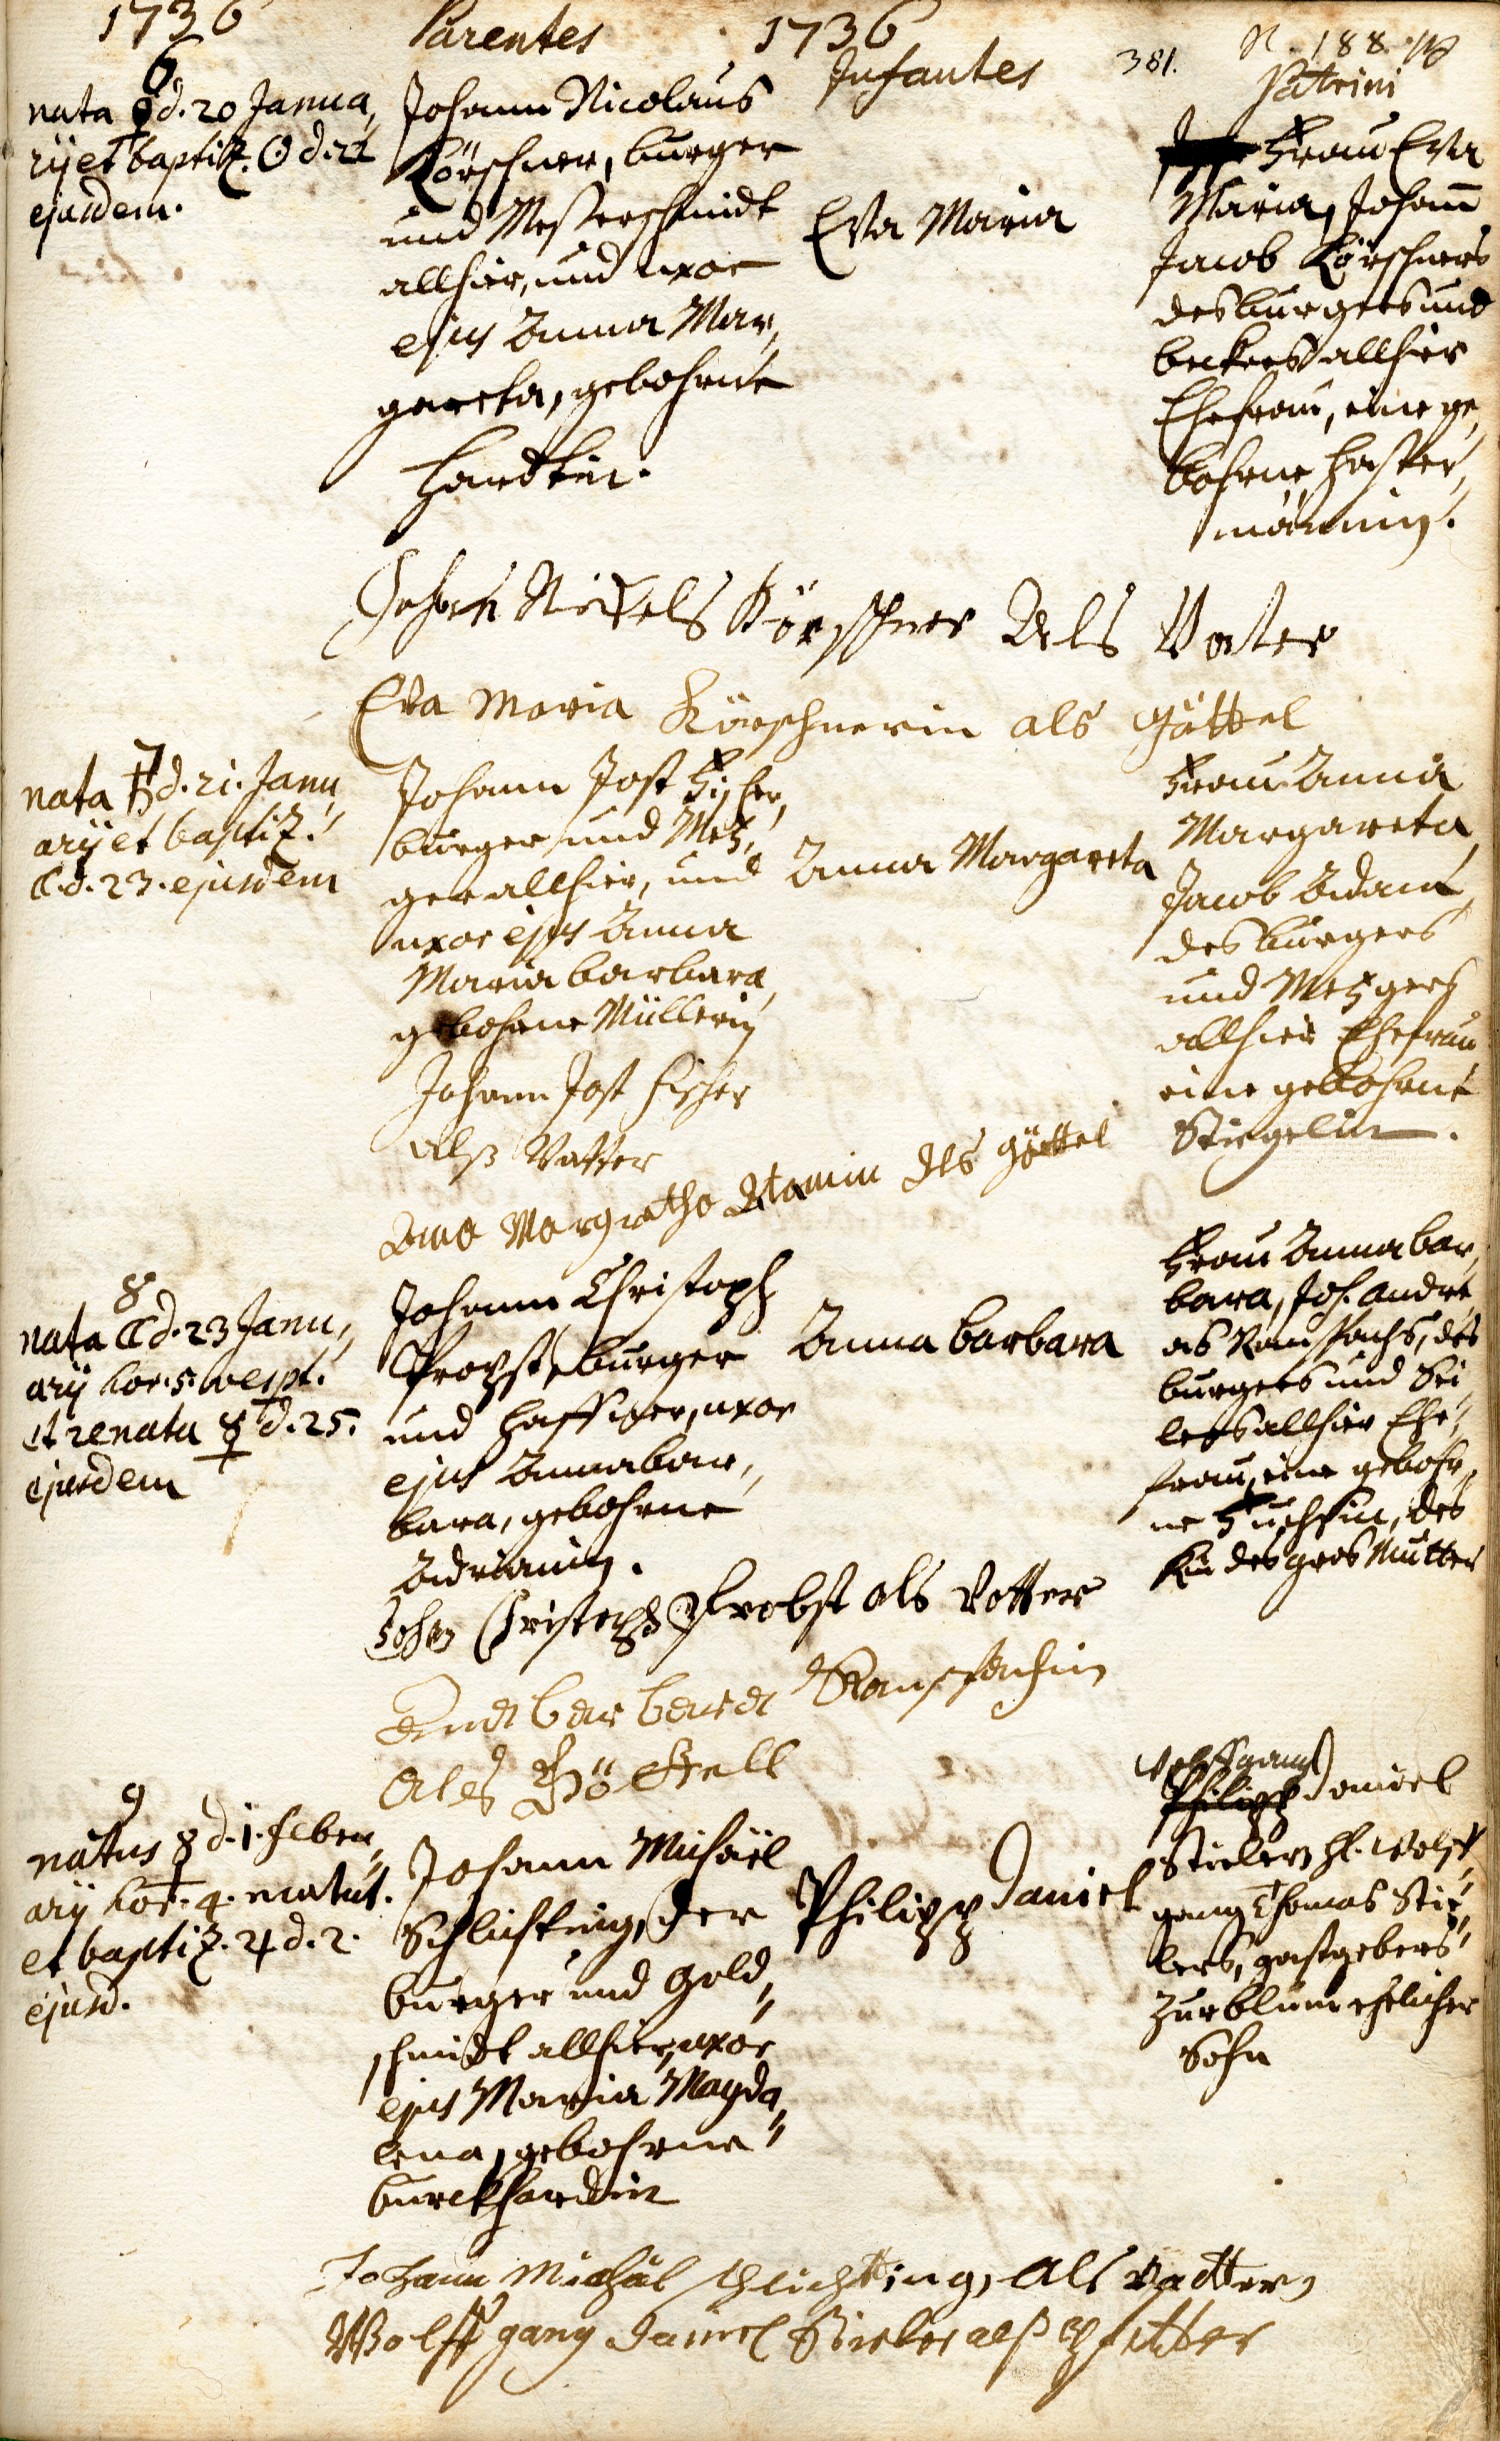 1736 Parentes 1736 Infantes 381. N. 188.
Patrini
6
nata ♀ d. 20 Janua,
rij et baptiz. ☉ d. 22
ejusdem.
Johann Nicolaus
Körschner, burger
und Meßerschmidt
allhier, und uxor
ejus Anna Mar,
gareta, gebohrne
Handtin.
Eva Maria
Frau Eva
Maria, Johañ
Jacob Körschners
des burgers und
beckers allhier
Ehefrau, eine ge,
bohrne Haster,
männin.
Johan Nickels Körschner Als Vater
Eva Maria Körschnerin als Göttel
7
nata ♄ d. 21. Janu,
arij et baptiz.
☾ d. 23. ejusdem
Johann Jost Fischer,
burger und Metz,
ger allhier, und
uxor ejus Anna
Maria barbara,
gebohrne Müllerin
Anna Margareta
Frau Anna
Margareta,
Jacob Adams,
des burgers
und Metzgers
allhier Ehefrau
eine gebohrne
Stiegelin.
Johann Jost fischer
alß Vatter
Ana Margretha Adamin Als göttel
8
nata ☾ d. 23 Janu,
arij hor. 5. vespt.
et renata ☿ d. 25.
ejusdem
Johann Christoph
Probst, burger
und Haffner, uxor
ejus Anna bar,
bara, gebohrne
Adrianin.
Anna barbara
Frau Anna bar,
bara, Joh. Andre,
as Ranspachs, des
burgers und Sei
lers allhier Ehe,
frau, eine gebohr,
ne Fuchsin, des
Kindes gros Mutter
Johan Christoph Probst als Vatter
Ana barbara Ranspachin
Als Göttell
9
natus ☿ d. 1. Febru,
arij hor. 4. matut.
et baptiz. ♃ d. 2.
ejusd.
Johann Michäel
Schlichting, der
burger und Gold,
schmidt allhier, uxor
ejus Maria Magda,
lena, gebohrne
burckhardin
Philipp Daniel
Wolffgang
Philipp Daniel
Stieler, H. Wolff,
gang Thomas Stie,
lers, gastgebers
zur blum ehelicher
Sohn
Johann Michäl Schlichting, als vatter,
Wolffgang Daniel Stieler alß Pfetter